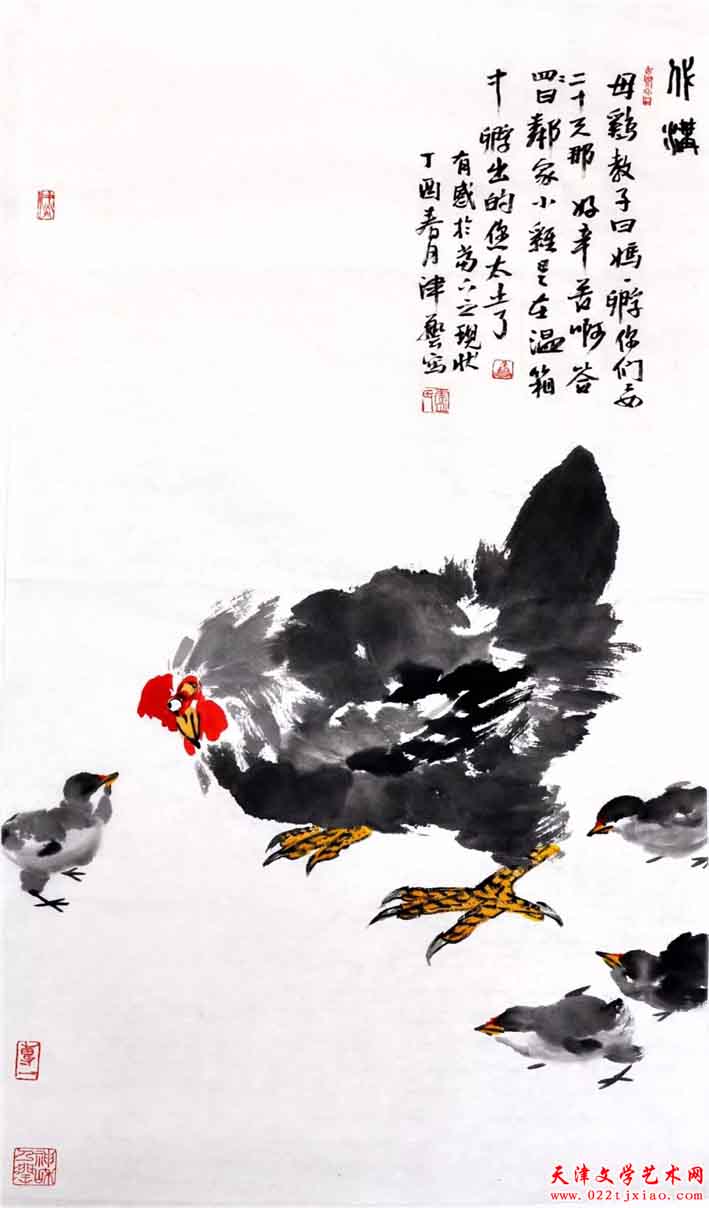 代溝
母鷄教子曰媽、孵你们要
二十天那好辛苦啊答
曰鄰家小雞是在温箱
中孵出的您太土了
有感於當下之現狀
丁酉春月津藝寫
專一
天津文学艺术网
www.022tjxiao.com